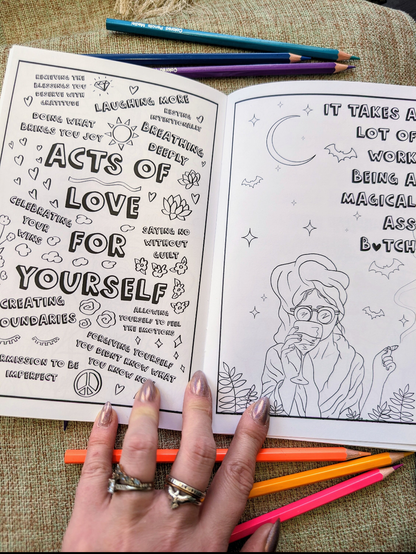 Coloring Pencils Made
RECIEVING THE
BLESSINGS YOU
DESERVE WITH
GRATITUDE
LAUGHING MORE
DOING WHAT
BRINGS YOU JOY
RESTING
INTENTIONALLY
BREATHING
DEEPLY
ACTS OF
LOVE
FOR
YOURSELF
CELEBRATING
YOUR
WINS
SAYING NO
WITHOUT
GUILT
CREATING
BOUNDARIES
ALLOWING
YOURSELF TO FEEL
THE EMOTIONS
FORGIVING YOURSELF
YOU DIDN'T KNOW WHAT
YOU KNOW NOW
RMISSION TO BE
IMPERFECT
IT TAKES A
LOT OF
WORK
BEING A
MAGICAL
ASS
B♥TCH